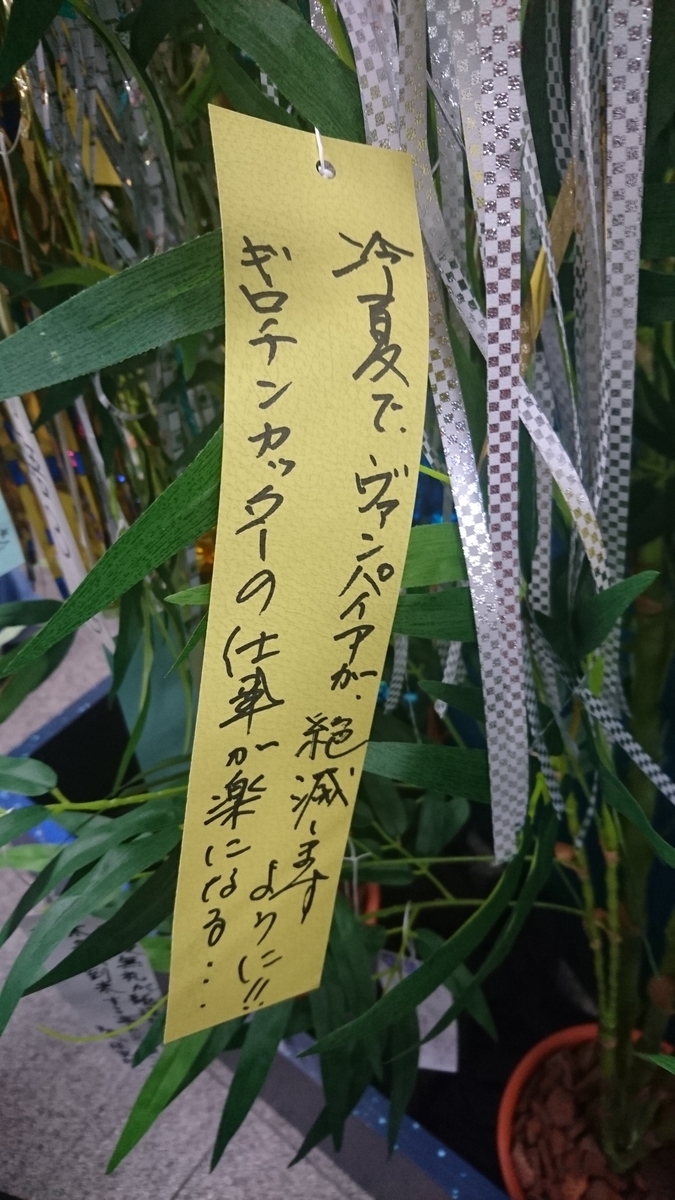 冷夏で、ヴァンパイアが、絶滅します
ように!!
ギロチンカッターの仕事が楽になる・・・